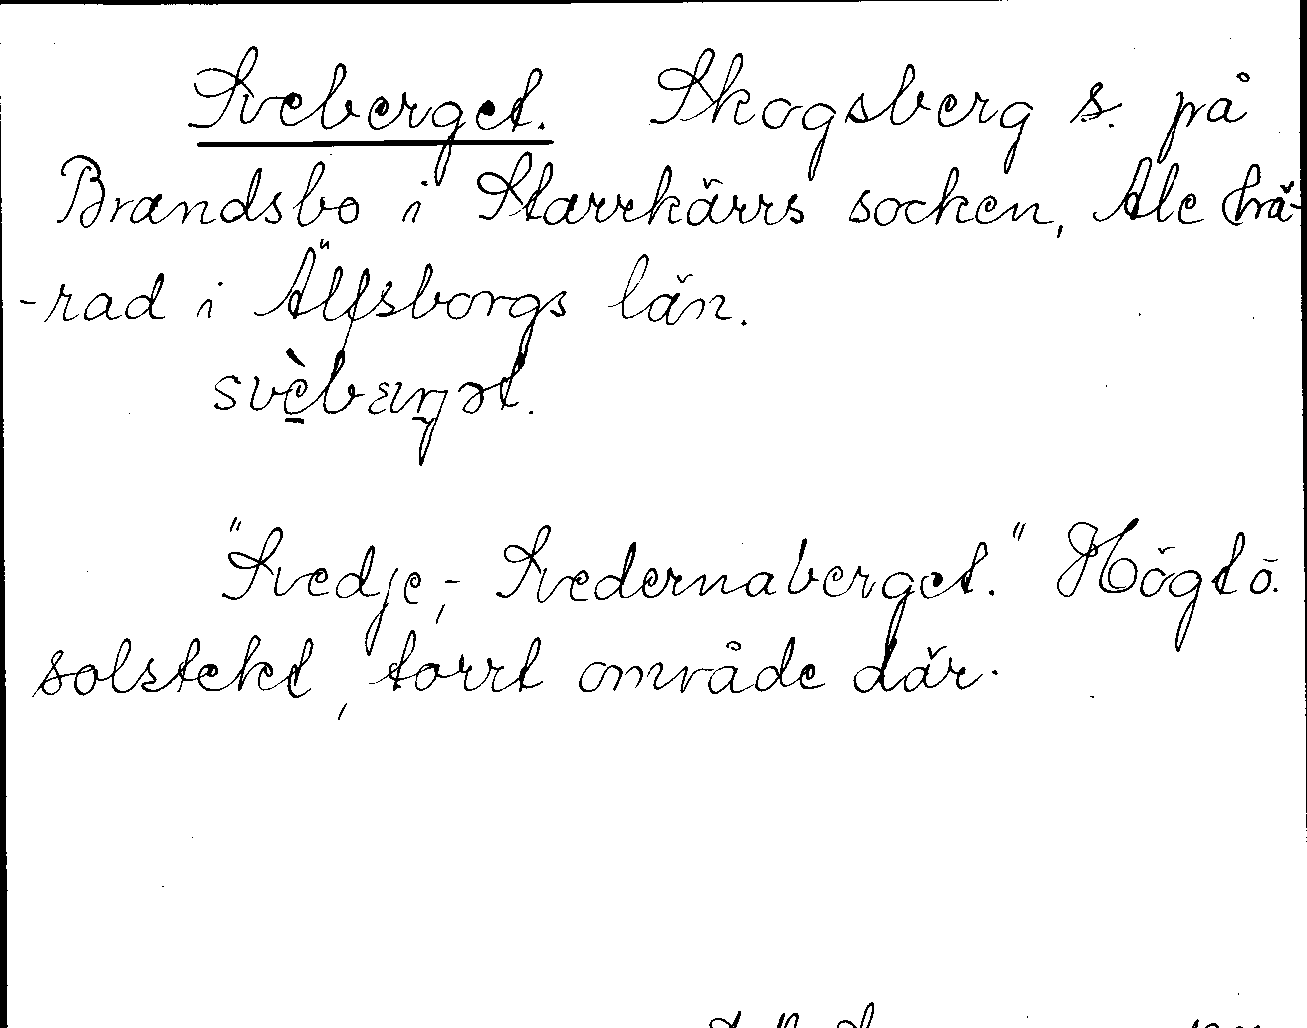 Sveberget. Skogsberg s. på
Brandsbo i Starrkärrs socken, Ale hä-
-rad i Älfsborgs län.
svèbærjət.
"Svedje,- Svedernaberget." Högt o.
solstekt, torrt område där.